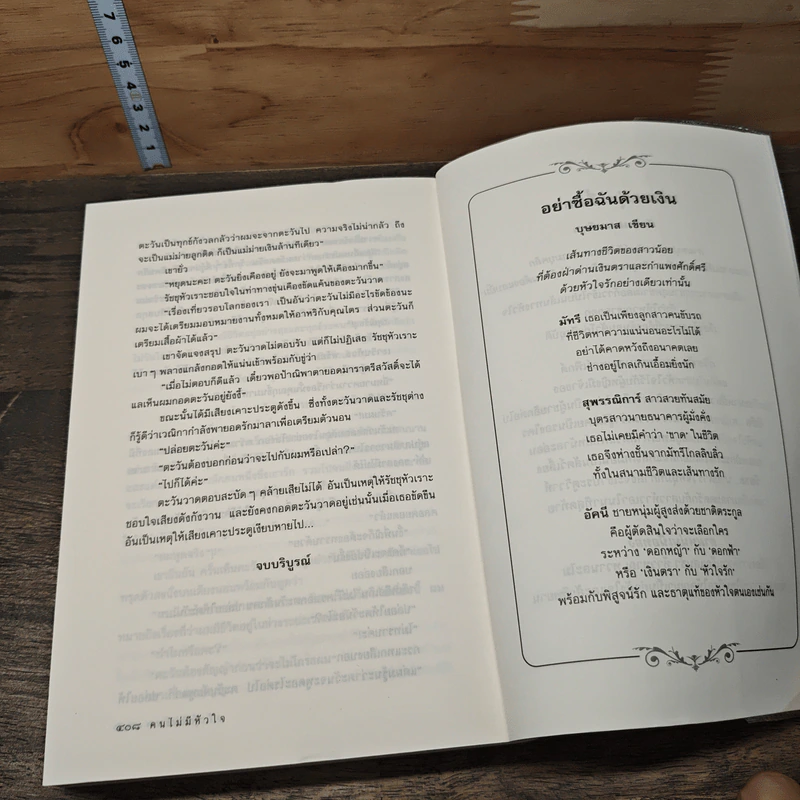 7 6 5 4 3 2 1
ตะวันเป็นทุกข์กังวลกลัวว่าผมจะจากตะวันไป ความจริงไม่น่ากลัว ถึง
จะเป็นแม่ม่ายลูกติด ก็เป็นแม่ม่ายเงินล้านทีเดียว"
เขายั่ว
"หยุดนะคะ! ตะวันยิ่งเคืองอยู่ ยังจะมาพูดให้เคืองมากขึ้น"
รัชชุหัวเราะชอบใจในท่าทางขุ่นเคืองขัดแค้นของตะวันวาด
"เรื่องเที่ยวรอบโลกของเรา เป็นอันว่าตะวันไม่มีอะไรขัดข้องนะ
ผมจะได้เตรียมมอบหมายงานทั้งหมดให้อาหริกับคุณไตร ส่วนตะวันก็
เตรียมเสื้อผ้าได้แล้ว"
เขาจัดแจงสรุป ตะวันวาดไม่ตอบรับ แต่ก็ไม่ปฏิเสธ รัชชุหัวเราะ
เบา ๆ พลางแกล้งกอดให้แน่นเข้าพร้อมกับขู่ว่า
"เมื่อไม่ตอบก็ดีแล้ว เดี๋ยวพอป้าณิพาตายอดมาราตรีสวัสดิ์จะได้
แลเห็นผมกอดตะวันอยู่ยังงี้"
ขณะนั้นได้มีเสียงเคาะประตูดังขึ้น ซึ่งทั้งตะวันวาดและรัชชุต่าง
ก็รู้ดีว่าเวณิกากำลังพายอดรักมาลาเพื่อเตรียมตัวนอน
"ปล่อยตะวันค่ะ"
"ตะวันต้องบอกก่อนว่าจะไปกับผมหรือเปล่า?"
"ไปก็ได้ค่ะ"
ตะวันวาดตอบสะบัด ๆ คล้ายเสียไม่ได้ อันเป็นเหตุให้รัชชุหัวเราะ
ชอบใจเสียงดังกังวาน และยังคงกอดตะวันวาดอยู่เช่นนั้นเมื่อเธอขัดขืน
อันเป็นเหตุให้เสียงเคาะประตูเงียบหายไป...
จบบริบูรณ์
๔๐๘ คนไม่มีหัวใจ
อย่าซื้อฉันด้วยเงิน
บุษยมาส เขียน
เส้นทางชีวิตของสาวน้อย
ที่ต้องฝ่าด่านเงินตราและกำแพงศักดิ์ศรี
ด้วยหัวใจรักอย่างเดียวเท่านั้น
มัทรี เธอเป็นเพียงลูกสาวคนขับรถ
ที่ชีวิตหาความแน่นอนอะไรไม่ได้
อย่าได้คาดหวังถึงอนาคตเลย
ช่างอยู่ไกลเกินเอื้อมยิ่งนัก
สุพรรณิการ์ สาวสวยทันสมัย
บุตรสาวนายธนาคารผู้มั่งคั่ง
เธอไม่เคยมีคำว่า 'ขาด' ในชีวิต
เธอจึงห่างชั้นจากมัทรีไกลลิบลิ่ว
ทั้งในสนามชีวิตและเส้นทางรัก
อัคนี ชายหนุ่มผู้สูงส่งด้วยชาติตระกูล
คือผู้ตัดสินใจว่าจะเลือกใคร
ระหว่าง 'ดอกหญ้า' กับ 'ดอกฟ้า'
หรือ 'เงินตรา' กับ 'หัวใจรัก'
พร้อมกับพิสูจน์รัก และธาตุแท้ของหัวใจตนเองเช่นกัน